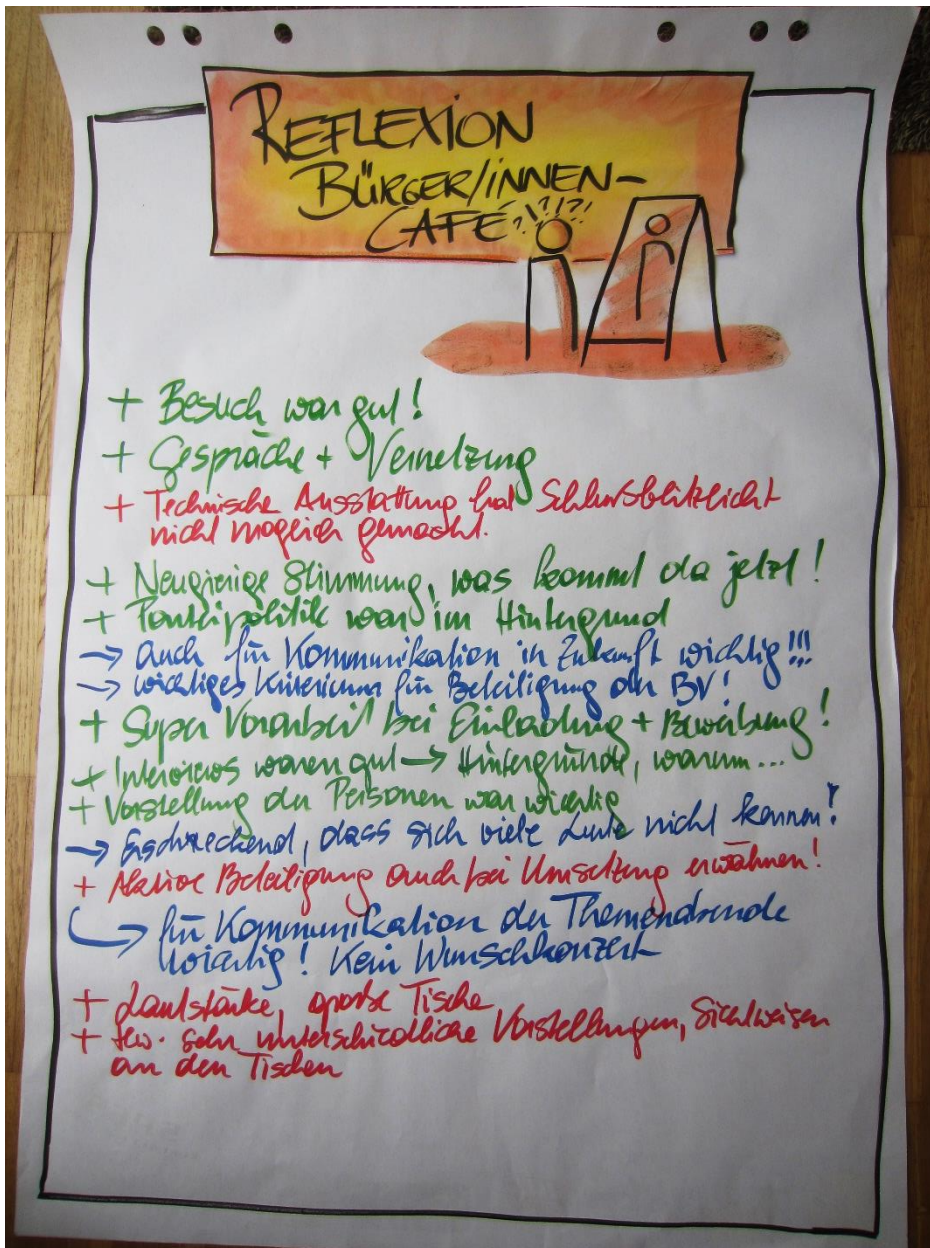 REFLEXION
BÜRGER/INNEN-
CAFÉ ?!?!?!
+ Besuch war gut!
+ Gespräche + Vernetzung
+ Technische Ausstattung hat Schlussblitzlicht
nicht möglich gemacht.
+ Neugierige Stimmung, was kommt da jetzt!
+ Parteipolitik war im Hintergrund
→ auch für Kommunikation in Zukunft wichtig!!!
→ wichtiges Kriterium für Beteiligung der BV!
+ Super Vorarbeit bei Einladung + Bewerbung!
+ Interviews waren gut → Hintergründe, warum...
+ Vorstellung der Personen war wichtig
→ Erschreckend, dass sich viele Leute nicht kennen!
+ Aktive Beteiligung auch bei Umsetzung erwähnen!
→ für Kommunikation der Themenabende
wichtig! Kein Wunschkonzert
+ Lautstärke, große Tische
+ tw. sehr unterschiedliche Vorstellungen, Sichtweisen
an den Tischen